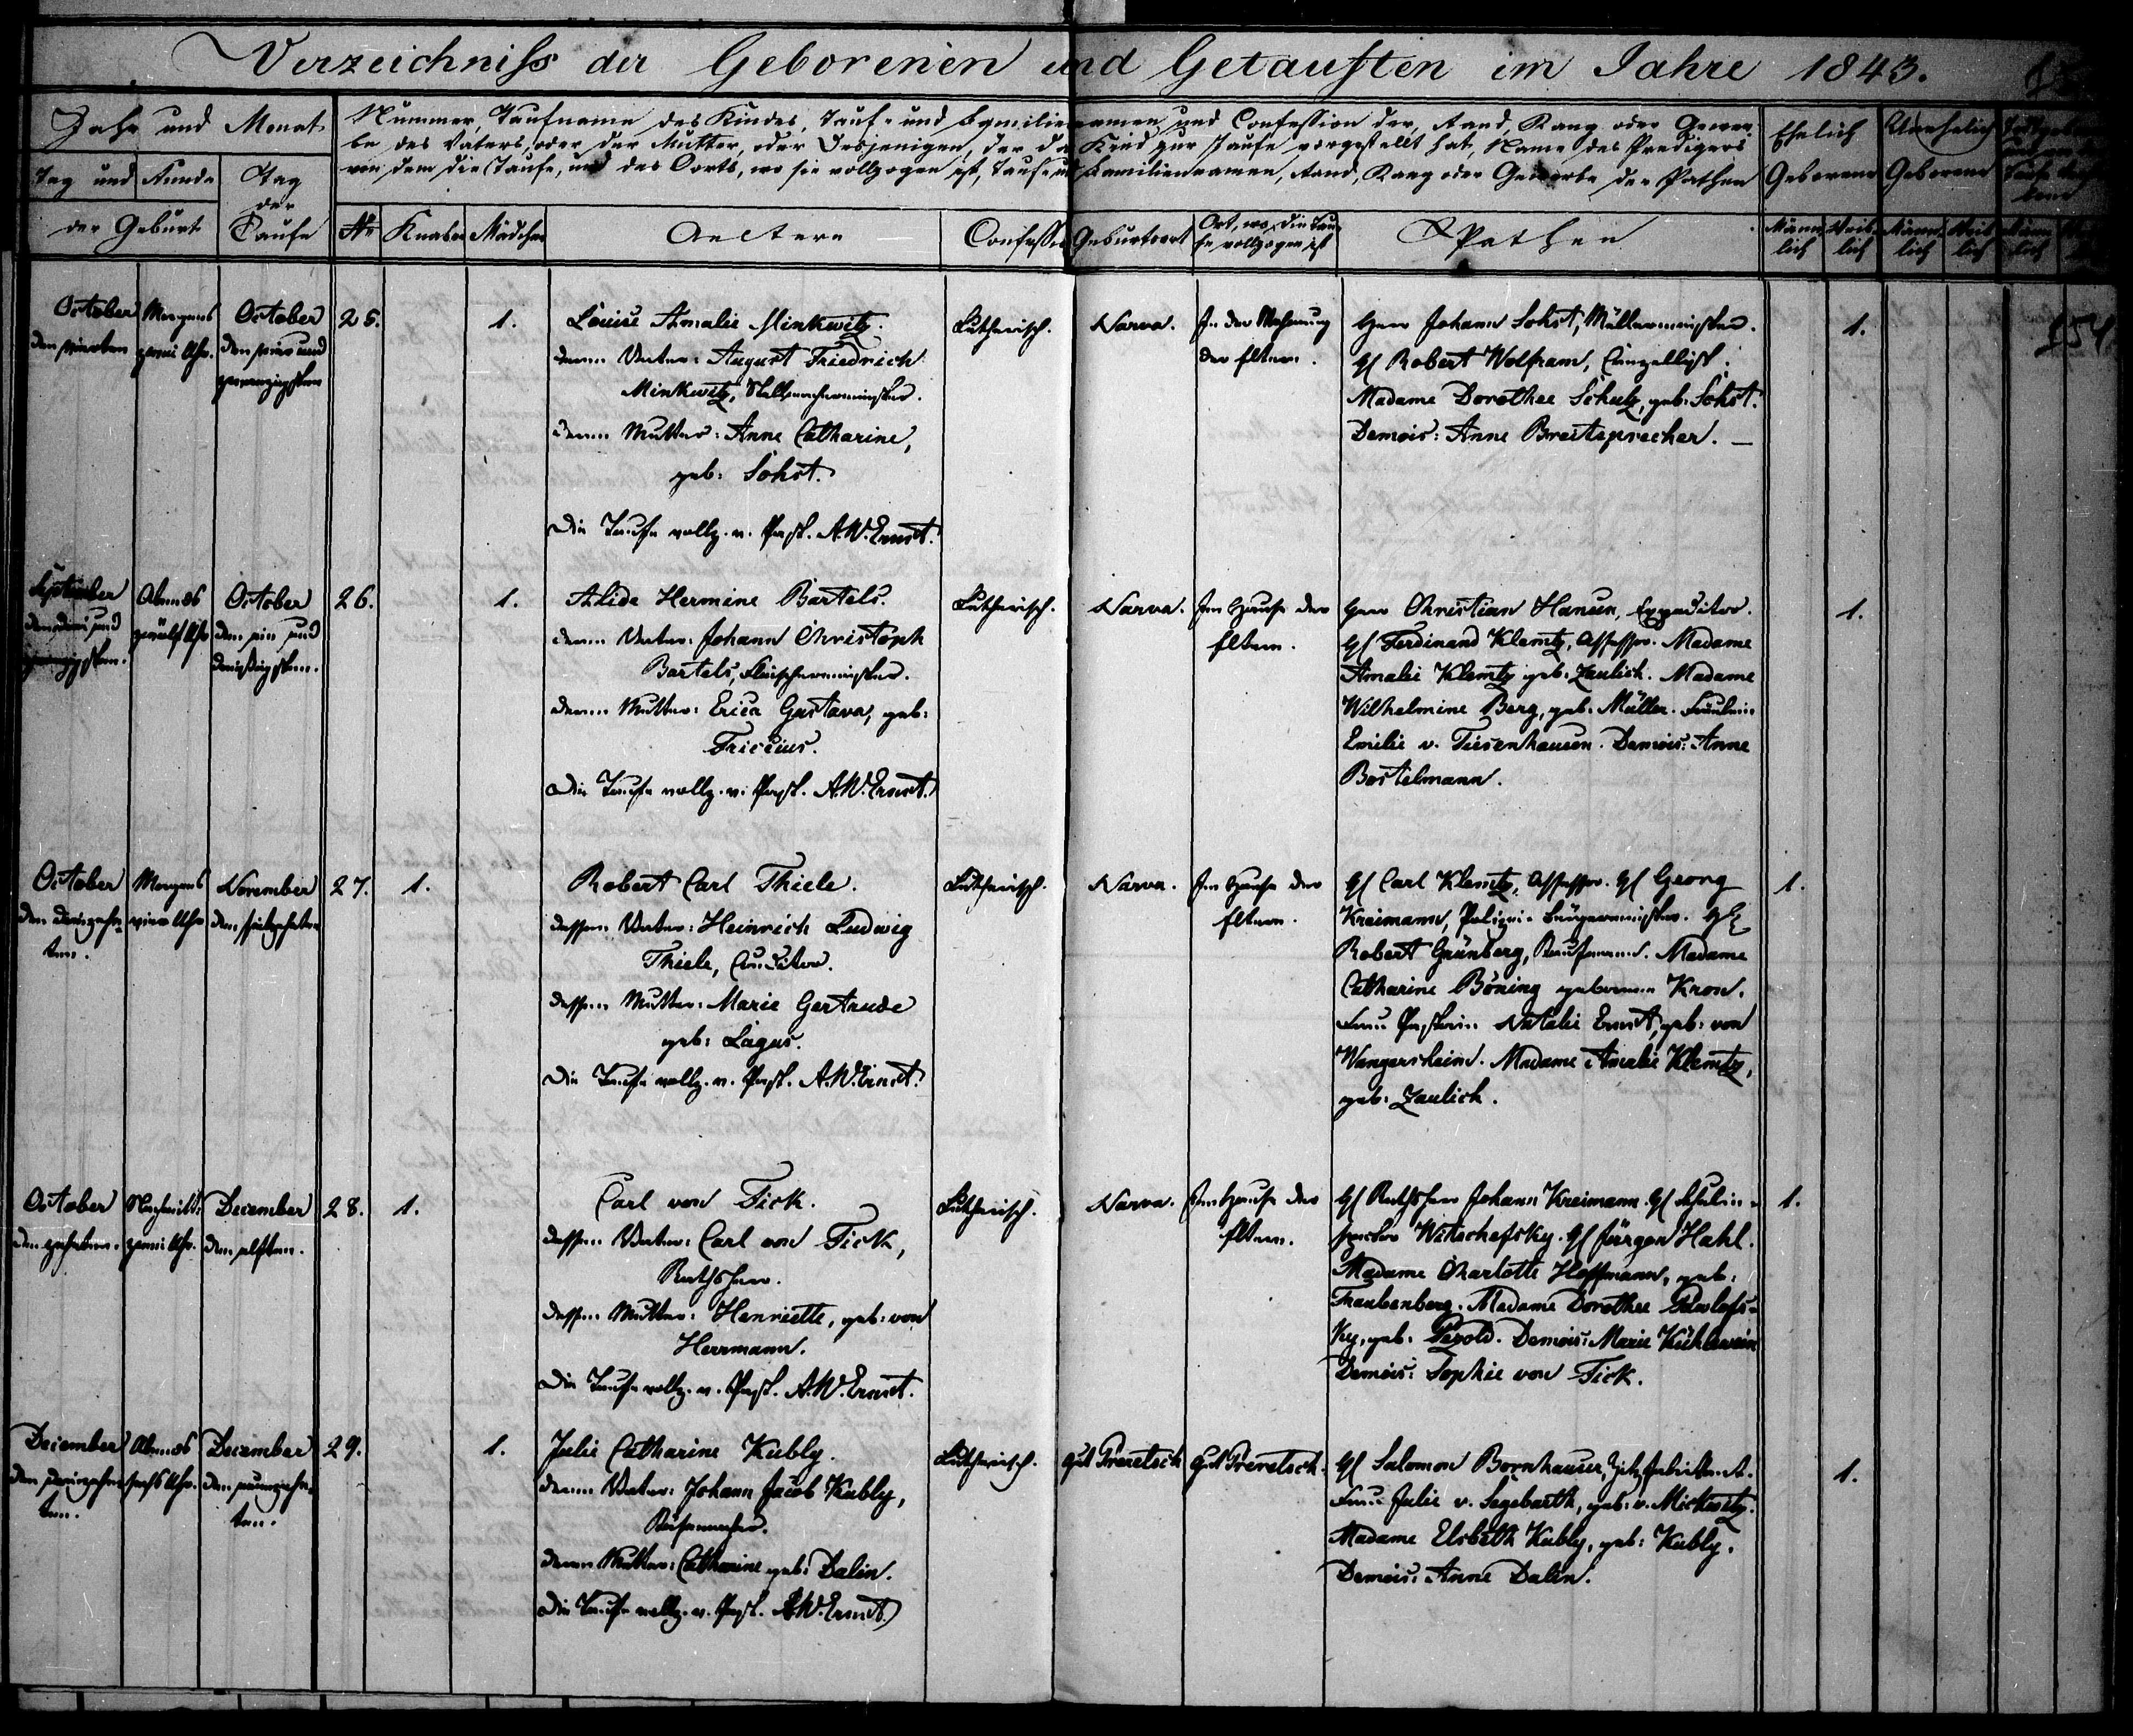 Verzeichniss der Geborenen und Getauften im Jahre 1843.
Jahr und Monat
Nummer, Taufname des Kindes, Tauf- und Familiennamen und Confession der, Stand, Rang oder Gewer-
be des Vaters, oder der Mutter, oder Desjenigen, der das Kind zur Taufe vorgestellt hat, Name des Predigers
von dem die Taufe, und des Orts, wo sie vollzogen ist, Tauf- und Familiennamen, Stand, Rang oder Gewerbe der Pathen
Ehelich Geborene
Unehelich Geborene
Tag und Stunde
der Geburt
Tag der Taufe
No
Knaben
Mädchen
Aeltern
Confession
Geburtsort
Ort, wo die Tau-
fe vollzogen ist
Pathen
Männ-
lich
Weib-
lich
Männ-
lich
Weib-
lich
Männ-
lich
October
den vierten
Morgens
zwei Uhr.
October
den vier und
zwanzigsten
25.
1.
Louise Amalie Minkwitz.
deren Vater: August Friedrich
Minkwitz, Stellmachermeister.
deren Mutter: Anne Catharine,
geb: Sohst.
Die Taufe vollz. v. Past. A. W. Ernst.
Lutherisch.
Narva.
In der Wohnung
der Eltern.
Herr Johann Sohst, Müllermeister.
H Robert Wolfram, Canzellist.
Madame Dorothee Schulz, geb: Sohst.
Demois: Anne Breitsprecher. —
1.
September
den drei und
zwanzigsten.
Abends
zwölf Uhr
October
den ein und
dreißigsten.
26.
1.
Alide Hermine Bartels.
deren Vater: Johann Christoph
Bartels, Fleischermeister.
deren Mutter: Erica Gustava, geb:
Friccius.
Die Taufe vollz. v. Past. A. W. Ernst.
Lutherisch.
Narva.
Im Hause der
Eltern.
Herr Christian Hansen, Expeditor.
H Ferdinand Klemtz, Assessor. Madame
Amalie Klemtz geb: Zaulich. Madame
Wilhelmine Berg, geb. Müller. Fräulein
Emilie v. Tiesenhausen. Demois: Anne
Bostelmann.
1.
October
den dreizehn-
ten.
Morgens
vier Uhr
November
den siebzehnten
27.
1.
Robert Carl Thiele.
dessen Vater: Heinrich Ludwig
Thiele, Auditor.
dessen Mutter: Marie Gertrude
geb: Lagus.
Die Taufe vollz. v. Past. A. W. Ernst.
Lutherisch.
Narva.
Im Hause der
Eltern.
H Carl Klemtz, Assessor. H Georg
Kreimann, Polizei-Bürgermeister. H
Robert Grünberg, Kaufmann. Madame
Catharine Böning geborene Kron.
Frau Pastorin Natalie Ernst, geb: von
Wangersheim. Madame Amalie Klemtz,
geb: Zaulich.
1.
October
den zehnten.
Nachmitt:
zwei Uhr.
December
den elften.
28.
1.
Carl von Fick.
dessen Vater: Carl von Fick,
Rathsherr.
dessen Mutter: Henriette, geb: von
Herrmann.
Die Taufe vollz. v. Past. A. W. Ernst.
Lutherisch.
Narva.
Im Hause der
Eltern.
H Rathsherr Johann Kreimann. H Schulin-
spector Witschefsky. H Jürgen Hahl.
Madame Charlotte Hoffmann, geb:
Traubenberg. Madame Dorothee Pawlofs-
ky, geb: Pezold. Demois: Marie Kühlewein
Demois: Sophie von Fick.
1.
December
ten.
Abends
sechs Uhr.
December
ten.
29.
1.
Julie Catharine Kubly.
deren Vater: Johann Jacob Kubly,
Käsemacher.
deren Mutter: Catharine geb: Dalin.
Die Taufe vollz. v. Past. A. W. Ernst.
Lutherisch.
Gut
Gut
H Salomon Bornhauser,
Frau Julie v. Segebarth, geb: v. Mickwitz.
Madame Elsbeth Kubly, geb: Kubly.
Demois: Anne Dalin.
1.